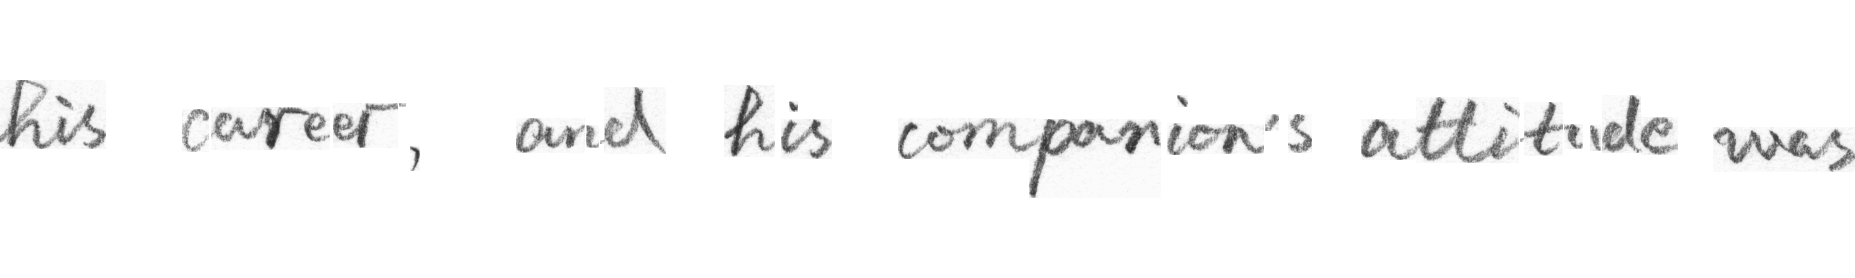 his career, and his companion's attitude was